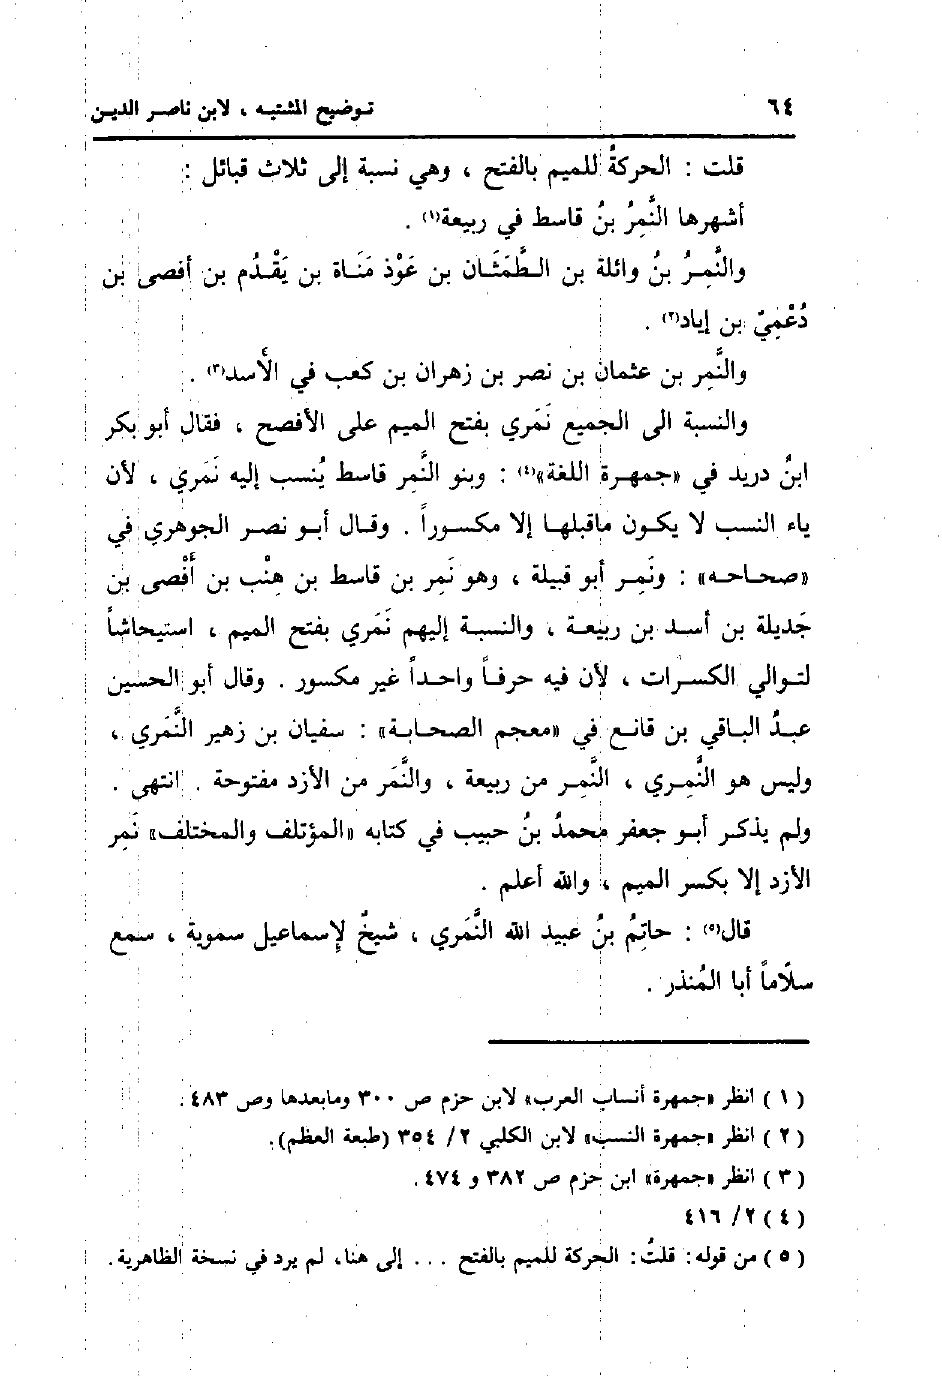 ٦٤
توضيح المشتبه ، لابن ناصر الدين
قلت : الحركةُ للميم بالفتح ، وهي نسبة إلى ثلاث قبائل :
أشهرها النَّمِرُ بنُ قاسط في ربيعة(١) .
والنَّمِرُ بنُ وائلة بن الطَّمَثَان بن عَوْذ مَنَاة بن يَقْدُم بن أفصى بن
دُعْمِيّ بن إياد(٢) .
والنَّمِر بن عثمان بن نصر بن زهران بن كعب في الأَسد(٣) .
والنسبة الى الجميع نَمَري بفتح الميم على الأفصح ، فقال أبو بكر
ابنُ دريد في «جمهرة اللغة»(٤) : وبنو النَّمِر قاسط يُنسب إليه نَمَري ، لأن
ياء النسب لا يكون ماقبلها إلا مكسوراً . وقال أبو نصر الجوهري في
«صحاحه» : ونَمِر أبو قبيلة ، وهو نَمِر بن قاسط بن هِنْب بن أَفْصى بن
جَديلة بن أسد بن ربيعة ، والنسبة إليهم نَمَري بفتح الميم ، استيحاشاً
لتوالي الكسرات ، لأن فيه حرفاً واحداً غير مكسور . وقال أبو الحسين
عبدُ الباقي بن قانع في «معجم الصحابة» : سفيان بن زهير النَّمَري ،
وليس هو النَّمِري ، النَّمِر من ربيعة ، والنَّمَر من الأزد مفتوحة . انتهى .
ولم يذكر أبو جعفر محمدُ بنُ حبيب في كتابه «المؤتلف والمختلف» نَمِر
الأزد إلا بكسر الميم ، والله أعلم .
قال(٥) : حاتِمُ بنُ عبيد الله النَّمَري ، شيخُ لإسماعيل سموية ، سمع
سلّاماً أبا المُنذر .
(١) انظر «جمهرة أنساب العرب» لابن حزم ص ٣٠٠ ومابعدها وص ٤٨٣.
(٢) انظر «جمهرة النسب» لابن الكلبي ٢/ ٣٥٤ (طبعة العظم).
(٣) انظر «جمهرة» ابن حزم ص ٣٨٢ و ٤٧٤.
(٤) ٢/ ٤١٦
(٥) من قوله: قلتُ: الحركة للميم بالفتح ... إلى هنا، لم يرد في نسخة الظاهرية.